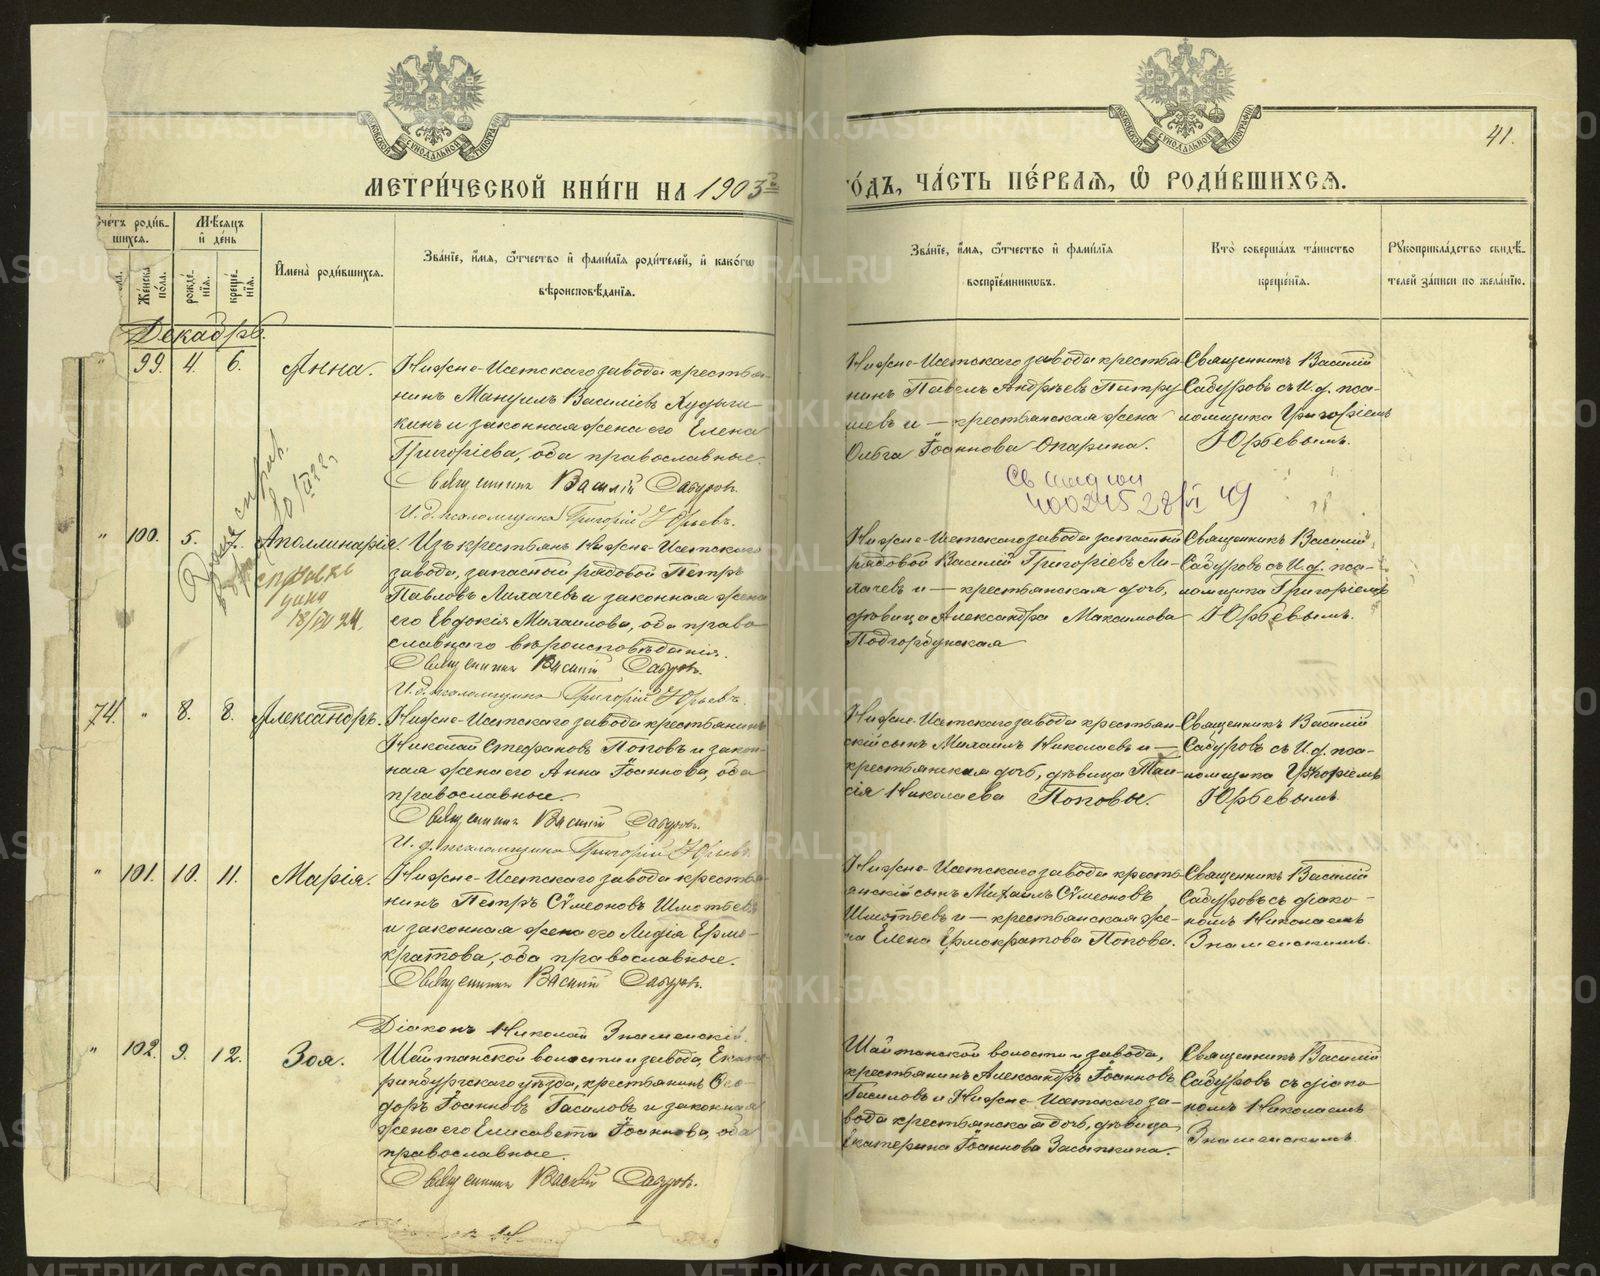 41.
МЕТРИ́ЧЕСКОЙ КНИ́ГИ НА 1903 й
ГО́ДЪ, ЧА́СТЬ ПЕ́РВАѦ, Ѡ РОДИ́ВШИХСѦ.
Счетъ роди́в-
шихсѧ.
Мѣсѧцъ
и҆ де́нь
Же́нска по́ла.
рожде́нїѧ.
креще́нїѧ.
И҆мена̀ роди́вшихсѧ.
Зва́нїе, и҆́мѧ, ѻ҆́тчество и҆ фами́лїѧ роди́телей, и҆ како́гѡ
вѣроисповѣ́данїѧ.
Зва́нїе, и҆́мѧ, ѻ҆́тчество и҆ фами́лїѧ
воспрїе́мникѡвъ.
Кто̀ соверша́лъ та́инство
креще́нїѧ.
Рꙋкоприкла́дство свидѣ́-
телей за́писи по жела́нїю.
Декабрь.
" 99. 4. 6. Анна.
Нижне-Исетскаго завода крестья-
нинъ Мануилъ Василіевъ
кинъ и законная жена его Елена
Григоріева, оба православные.
Священникъ Василій Садуровъ.
И. д. псаломщика Григорій Юрьевъ.
Нижне-Исетскаго завода крестья-
нинъ Павелъ Андреевъ Патру-
шевъ и — крестьянская жена
Ольга Іоаннова Опарина.
Священникъ Василій
Садуровъ съ И. д. пса-
ломщика Григоріемъ
Юрьевымъ.
400245 28/VI 49
" 100. 5. 7. Аполлинарія.
справка
18/VII 24.
Изъ крестьянъ Нижне-Исетскаго
завода, запасный рядовой Петръ
Павловъ Лихачевъ и законная жена
его Евдокія Михаилова, оба право-
славнаго вѣроисповѣданія.
Священникъ Василій Садуровъ.
И. д. псаломщика Григорій Юрьевъ.
Нижне-Исетскаго завода запасный
рядовой Василій Григоріевъ Ли-
хачевъ и — крестьянская дочь,
дѣвица Александра Максимова
Подгорбунская
Священникъ Василій
Садуровъ съ И. д. пса-
ломщика Григоріемъ
Юрьевымъ.
74. " 8. 8. Александръ.
Нижне-Исетскаго завода крестьянинъ
Николай Стефановъ Поповъ и закон-
ная жена его Анна Іоаннова, оба
православные.
Священникъ Василій Садуровъ.
И. д. псаломщика Григорій Юрьевъ.
Нижне-Исетскаго завода крестьян-
скій сынъ Михаилъ Николаевъ и —
крестьянская дочь, дѣвица Таи-
сія Николаева Поповы.
Священникъ Василій
Садуровъ съ И. д. пса-
ломщика Григоріемъ
Юрьевымъ.
" 101. 10. 11. Марія.
Нижне-Исетскаго завода крестья-
нинъ Петръ Сѵмеоновъ Шмотьевъ
и законная жена его Лидія Ермо-
кратова, оба православные.
Священникъ Василій Садуровъ.
Діаконъ Николай Знаменскій.
Нижне-Исетскаго завода кресть-
янскій сынъ Михаилъ Сѵмеоновъ
Шмотьевъ и — крестьянская же-
на Елена Ермократова Попова.
Священникъ Василій
Садуровъ съ діако-
номъ Николаемъ
Знаменскимъ.
" 102. 9. 12. Зоя.
Шайтанской волости и завода, Екате-
ринбургскаго уѣзда, крестьянинъ Ѳео-
доръ Іоанновъ Гасиловъ и законная
жена его Елисавета Іоаннова, оба
православные.
Священникъ Василій Садуровъ.
Шайтанской волости и завода,
крестьянинъ Александръ Іоанновъ
Гасиловъ и Нижне-Исетскаго за-
вода крестьянская дочь, дѣвица
Екатерина Іоаннова Засыпкина.
Священникъ Василій
Садуровъ съ діако-
номъ Николаемъ
Знаменскимъ
METRIKI.GASO-URAL.RU